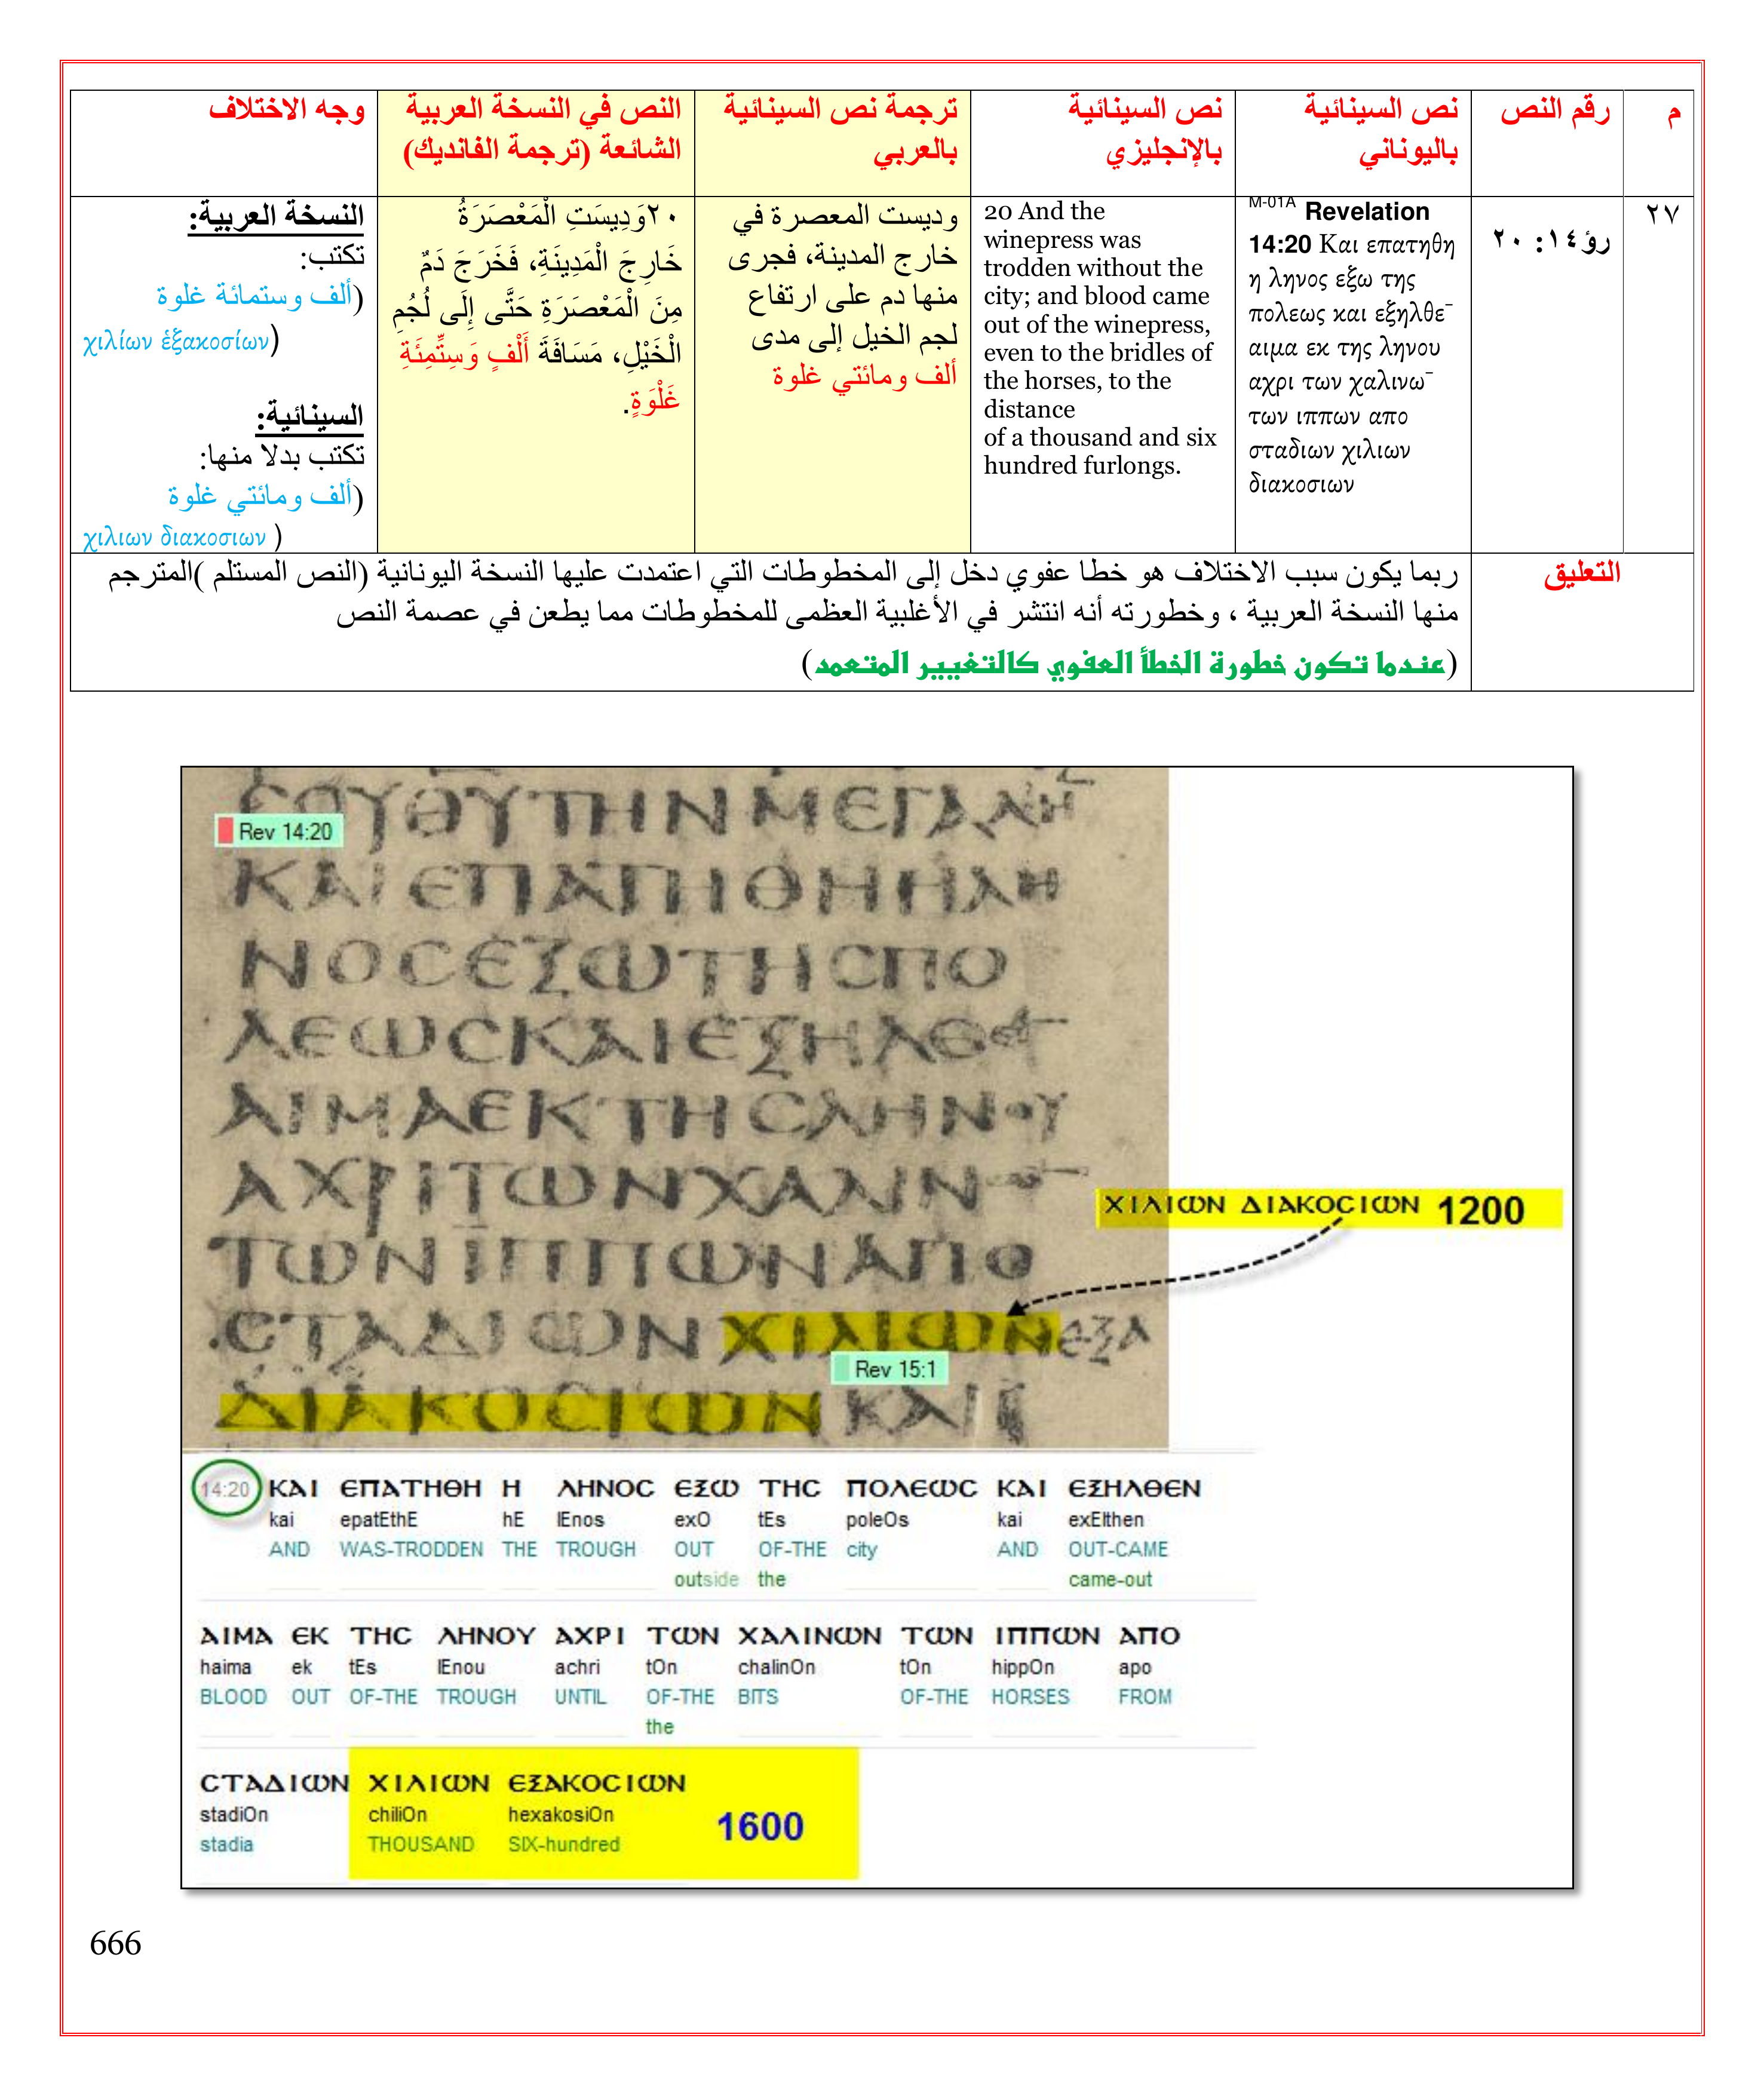 م
رقم النص
نص السينائية
باليوناني
نص السينائية
بالإنجليزي
ترجمة نص السينائية
بالعربي
النص في النسخة العربية
الشائعة (ترجمة الفانديك)
وجه الاختلاف
٢٧
رؤ١٤: ٢٠
M-01A Revelation
14:20 Και επατηθη
η ληνος εξω της
πολεως και εξηλθε¯
αιμα εκ της ληνου
αχρι των χαλινω¯
των ιππων απο
σταδιων χιλιων
διακοσιων
20 And the
winepress was
trodden without the
city; and blood came
out of the winepress,
even to the bridles of
the horses, to the
distance
of a thousand and six
hundred furlongs.
وديست المعصرة في
خارج المدينة، فجرى
منها دم على ارتفاع
لجم الخيل إلى مدى
ألف ومائتي غلوة
٢٠وَدِيسَتِ الْمَعْصَرَةُ
خَارِجَ الْمَدِينَةِ، فَخَرَجَ دَمٌ
مِنَ الْمَعْصَرَةِ حَتَّى إِلَى لُجُمِ
الْخَيْلِ، مَسَافَةَ أَلْفٍ وَسِتِّمِئَةِ
غَلْوَةٍ.
النسخة العربية:
تكتب:
(ألف وستمائة غلوة
χιλίων ἑξακοσίων)
السينائية:
تكتب بدلا منها:
(ألف ومائتي غلوة
χιλιων διακοσιων )
التعليق
ربما يكون سبب الاختلاف هو خطا عفوي دخل إلى المخطوطات التي اعتمدت عليها النسخة اليونانية (النص المستلم )المترجم
منها النسخة العربية ، وخطورته أنه انتشر في الأغلبية العظمى للمخطوطات مما يطعن في عصمة النص
(عندما تكون خطورة الخطأ العفوي كالتغيير المتعمد)
ΤΟΥΘΥΤΗΝΜΕΓΑΛΗ
Rev 14:20
ΚΑΙΕΠΑΤΗΘΗΗΛΗ
ΝΟCΕΞΩΤΗCΠΟ
ΛΕΩCΚΑΙΕΞΗΛΘΕ
ΑΙΜΑΕΚΤΗCΛΗΝΟΥ
ΑΧΡΙΤΩΝΧΑΛΙΝΩ
ΤΩΝΙΠΠΩΝΑΠΟ
CΤΑΔΙΩΝΧΙΛΙΩΝΕΞΑ
ΔΙΑΚΟCΙΩΝ ΚΑΙ
Rev 15:1
ΧΙΛΙΩΝ ΔΙΑΚΟCΙΩΝ 1200
14:20 ΚΑΙ ΕΠΑΤΗΘΗ Η ΛΗΝΟC ΕΞΩ ΤΗC ΠΟΛΕΩC ΚΑΙ ΕΞΗΛΘΕΝ
kai epatEthE hE lEnos exO tEs poleOs kai exElthen
AND WAS-TRODDEN THE TROUGH OUT OF-THE city AND OUT-CAME
outside the came-out
ΑΙΜΑ ΕΚ ΤΗC ΛΗΝΟΥ ΑΧΡΙ ΤΩΝ ΧΑΛΙΝΩΝ ΤΩΝ ΙΠΠΩΝ ΑΠΟ
haima ek tEs lEnou achri tOn chalinOn tOn hippOn apo
BLOOD OUT OF-THE TROUGH UNTIL OF-THE BITS OF-THE HORSES FROM
the
CΤΑΔΙΩΝ ΧΙΛΙΩΝ ΕΞΑΚΟCΙΩΝ
stadiOn chiliOn hexakosiOn 1600
stadia THOUSAND SIX-hundred
666